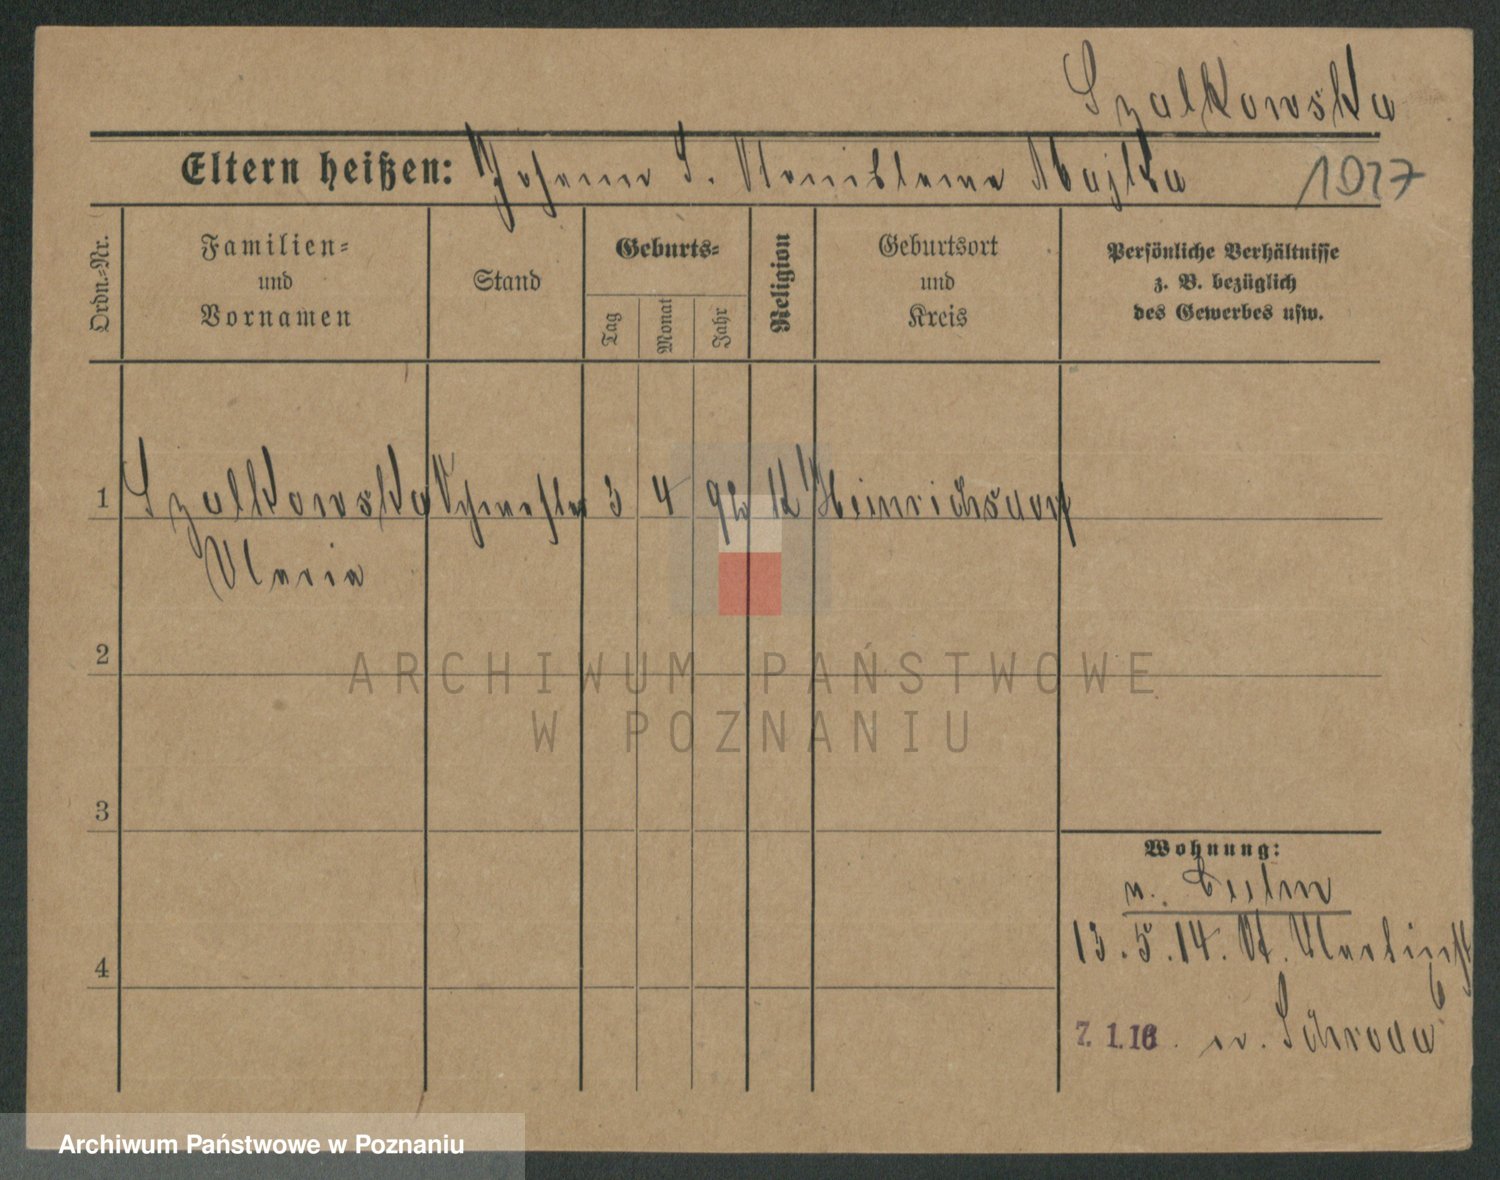 Szalkowska
Eltern heißen: Johann S. Stanislawa Majka
1017
Ordn.=Nr.
Familien=
und
Vornamen
Stand
Geburts=
Tag
Monat
Jahr
Religion
Geburtsort
und
Kreis
Persönliche Verhältnisse
z. B. bezüglich
des Gewerbes usw.
1 Szalkowska Schwester 3 4 92 K Heinrichsdorf
Maria
2
ARCHIWUM PAŃSTWOWE
W POZNANIU
3
Wohnung:
n.
13.5.14. St. Martinst
6
4
7. 1.16 n. Schroda
Archiwum Państwowe w Poznaniu